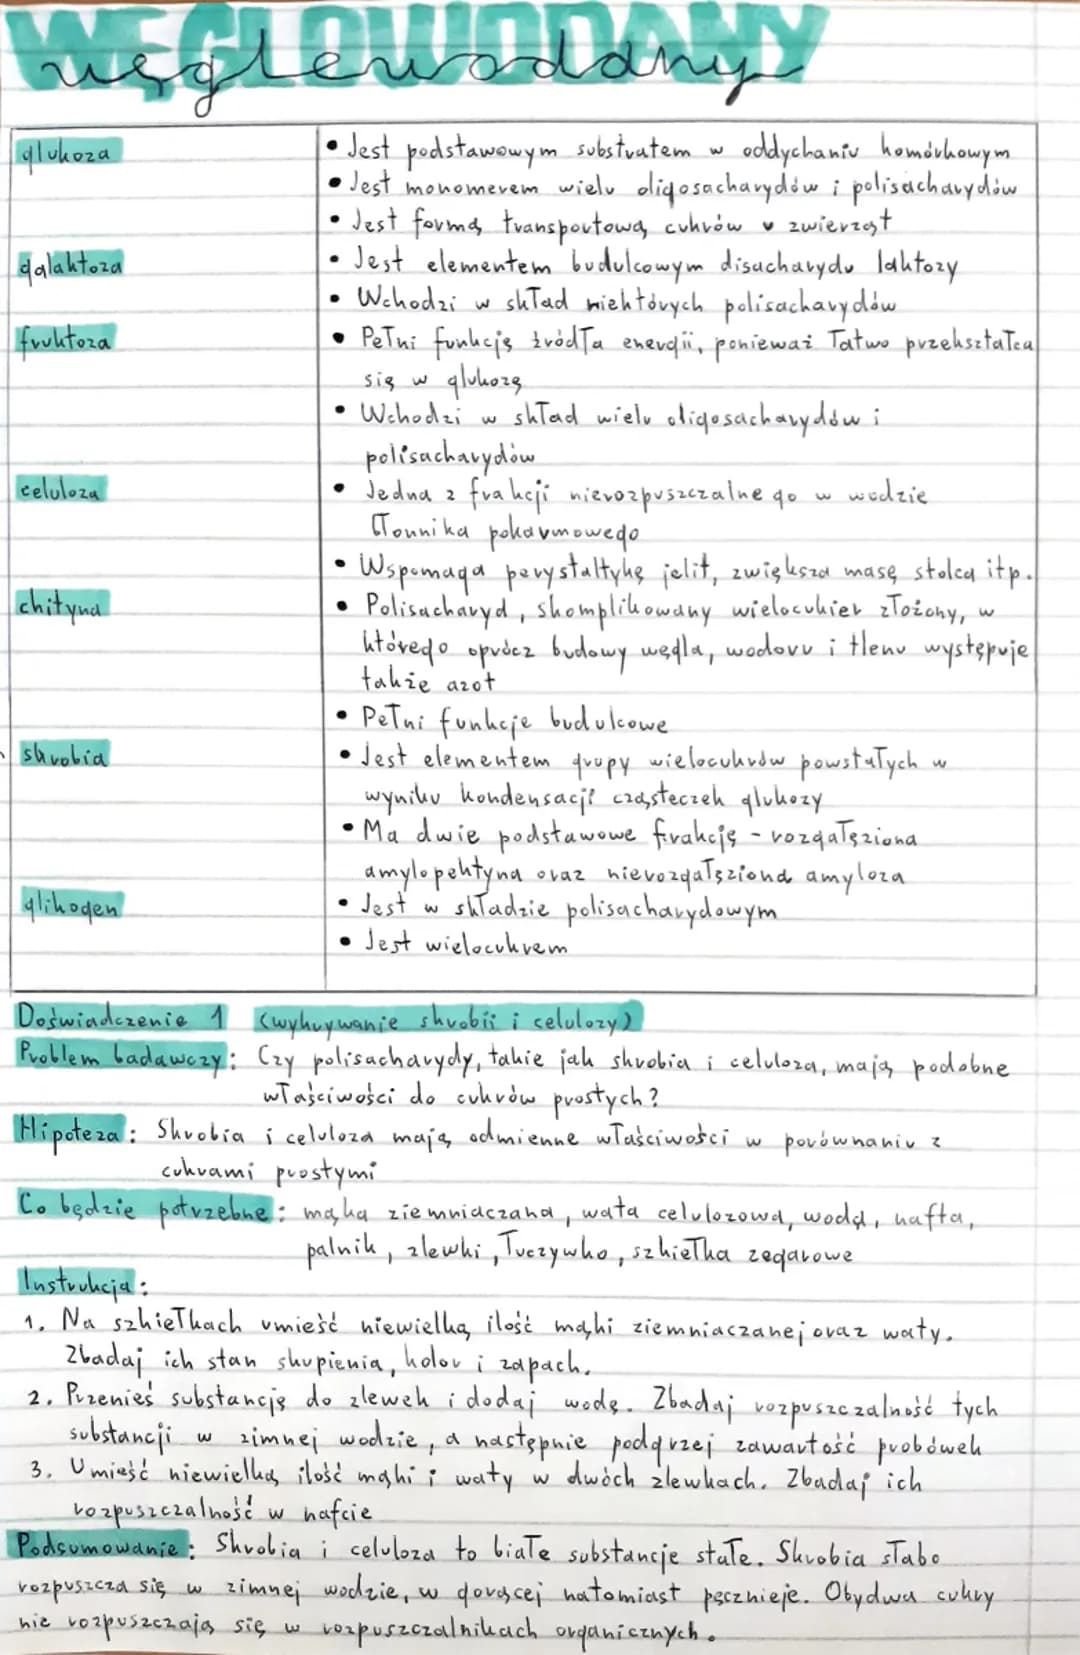 WĘGLOWODANY
węglowodany
glukoza
• Jest podstawowym substratem w oddychaniu komórkowym
• Jest monomerem wielu oligosacharydów i polisacharydów
• Jest formą transportową cukrów u zwierząt
galaktoza
• Jest elementem budulcowym disacharydu laktozy
• Wchodzi w skład niektórych polisacharydów
fruktoza
• Pełni funkcję źródła energii, ponieważ łatwo przekształca
się w glukozę
• Wchodzi w skład wielu oligosacharydów i
polisacharydów
celuloza
• Jedna z frakcji nierozpuszczalnego w wodzie
błonnika pokarmowego
• Wspomaga perystaltykę jelit, zwiększa masę stolca itp.
chityna
• Polisacharyd, skomplikowany wielocukier złożony, w
którego oprócz budowy węgla, wodoru i tlenu występuje
także azot
• Pełni funkcje budulcowe
skrobia
• Jest elementem grupy wielocukrów powstałych w
wyniku kondensacji cząsteczek glukozy
• Ma dwie podstawowe frakcję - rozgałęziona
amylopektyna oraz nierozgałęziona amyloza
glikogen
• Jest w składzie polisacharydowym
• Jest wielocukrem
Doświadczenie 1 (wykrywanie skrobii i celulozy)
Problem badawczy: Czy polisacharydy, takie jak skrobia i celuloza, mają podobne
właściwości do cukrów prostych?
Hipoteza: Skrobia i celuloza mają odmienne właściwości w porównaniu z
cukrami prostymi
Co będzie potrzebne: mąka ziemniaczana, wata celulozowa, woda, nafta,
palnik, zlewki, łuczywko, szkiełka zegarowe
Instrukcja:
1. Na szkiełkach umieść niewielką ilość mąki ziemniaczanej oraz waty.
Zbadaj ich stan skupienia, kolor i zapach.
2. Przenieś substancję do zlewek i dodaj wodę. Zbadaj rozpuszczalność tych
substancji w zimnej wodzie, a następnie podgrzej zawartość probówek
3. Umieść niewielką ilość mąki i waty w dwóch zlewkach. Zbadaj ich
rozpuszczalność w nafcie
Podsumowanie: Skrobia i celuloza to białe substancje stałe. Skrobia słabo
rozpuszcza się w zimnej wodzie, w gorącej natomiast pęcznieje. Obydwa cukry
nie rozpuszczają się w rozpuszczalnikach organicznych.